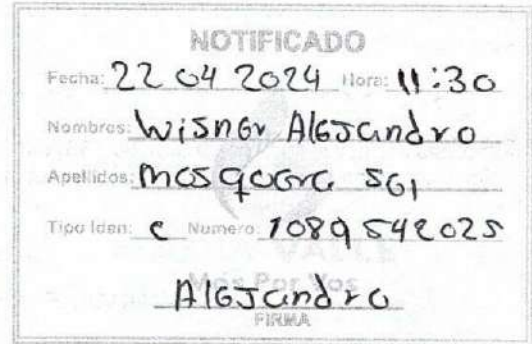 NOTIFICADO
Fecha: 22 04 2024 Hora: 11:30
Nombres: Wisner Alejandro
Apellidos: Mosquera
Tipo Iden: C Numero: 1089542025
VALLE
Más Por Vos
Alejandro
FIRMA